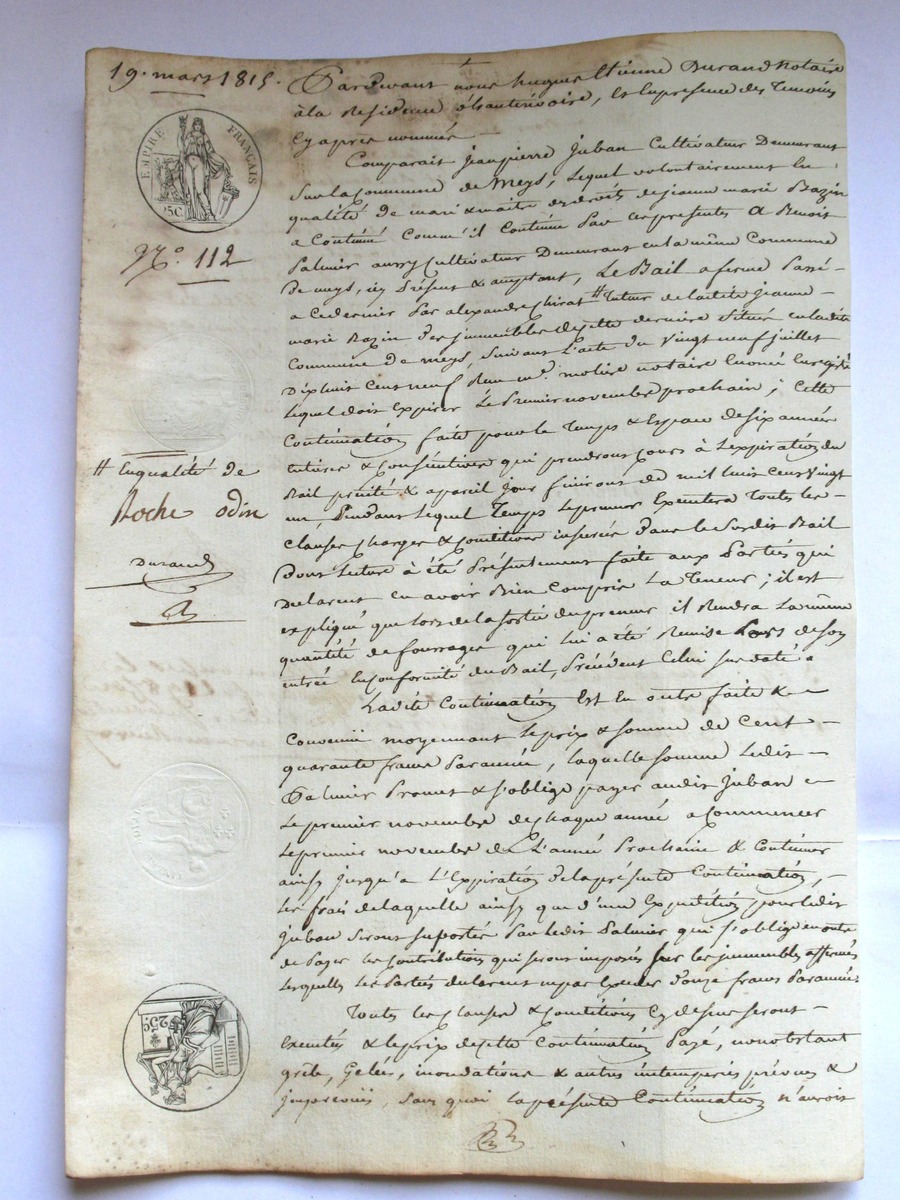 19. mars 1815.
EMPIRE FRANÇAIS
25C
No. 112
# Enqualité de
Roche odin
Durand
Pardevant nous hugues Etienne Durand Notaire
à la Residence dhauterivoire, & En presence des Temoins
Cy apres nommés
Comparait Jeanpierre Juban Cultivateur Demeurant
Sur la Commune de Meys, Lequel volontairement En
qualité De mari & maitre des droits de jeanne marie Bazin
a Continué Comm'il Continue Par Ces presentes A Benoit
Palmier aussy Cultivateur Demeurant en la même Commune
De meys, icy Présent & acceptant, Le Bail a ferme Passé
a Cedernier Par alexandre # tuteur de ladite Jeanne
marie Bazin des immeubles de cette derniere Situés en ladite
Commune De meys, Suivant L'acte du Vingt neuf juillet
Dixhuit Cent neuf Reçu me. notaire Enregistré
Lequel doit Expirer Le Premier novembre prochain ; Cette
Continuation faite pour le Temps & Espace de six années
Entieres & Consécutives qui prendront cours à L'expiration du
Bail précité & apareil Jour finiront de mil huit Cent Vingt
un Pendant Lequel Temps Lepreneur Executera Toutes les
Clauses Charges & Conditions inserées Dans le Susdit Bail
Dont Lecture à été Présentement faite aux Parties qui
Declarent en avoir Bien Compris La Teneur ; il est
expliqué que Lors de la Sortie du preneur il Rendra La même
quantité de fourrages qui lui a été Remise Lors de son
entrée En Conformité du Bail, Précédent Celui Sus daté
Ladite Continuation Est En outre faite &
Convenue moyennant Leprix & Somme de Cent
quarante francs Par année, laquelle somme Ledit
Palmier Promet & s'oblige payer audit Juban
Le premier novembre de Chaque année a Commencer
Le premier novembre de L'année Prochaine & Continuer
ainsy jusqu'a L'Expiration de la présente Continuation,
Les frais de laquelle ainsy que d'une Expédition pour ledit
Juban Seront Suportés Par Ledit Palmier qui s'oblige en outre
de Payer les Contributions qui seront imposés Sur les immeubles affermés
Lesquelles Les Parties declarent ne pas Exceder Douze francs Par année
Toutes les Clauses & Conditions Cy dessus seront
Executés & le prix de cette Continuation Payé, nonobstant
grêle, Gelées, inondations & autres intemperies prévues &
imprévues, Sans quoi la présente Continuation n'auroit
25C